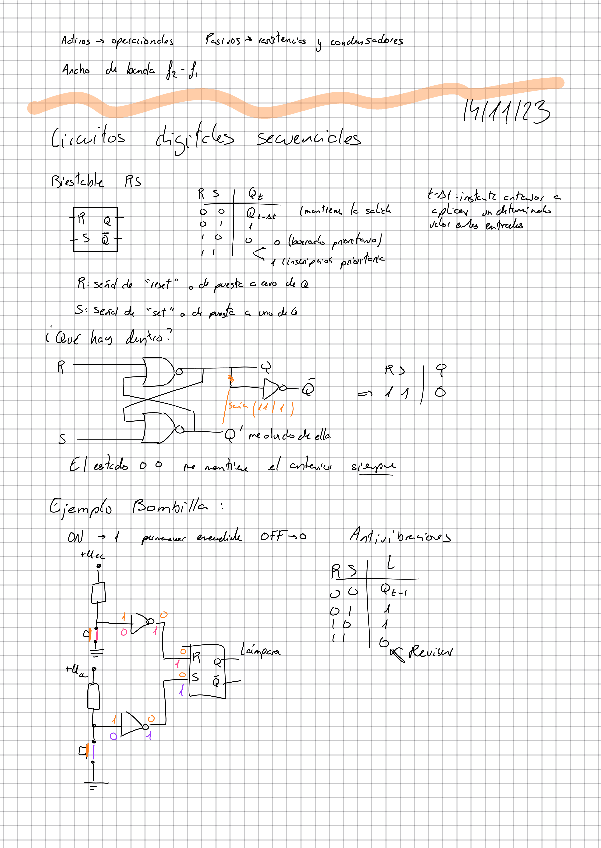 Activos → operacionales Pasivos → resistencias y condensadores
Ancho de banda f2 - f1
14/11/23
Circuitos digitales secuenciales
Biestable RS
R Q
S Q̅
R S | Qt
0 0 | Qt-Δt (mantiene la salida
0 1 | 1
1 0 | 0
1 1 | 0 (borrado prioritario)
1 (inscripción prioritaria
t-Δt - instante anterior a
aplicar un determinado
valor entradas
R: señal de "reset" o de puesta a cero de Q
S: señal de "set" o de puesta a uno de Q
¿Qué hay dentro?
R
Q
Q̅
sería (11/1)
S
Q' me olvido de ella
R S | Q
⇒ 1 1 | 0
El estado 0 0 me mantiene el anterior siempre
Ejemplo Bombilla:
ON → 1 permanecer encendida OFF → 0
Antivibraciones
+Ucc
1 0
0 1
0 R Q Lámpara
1
0 S Q̅
1
+Ucc
1 0
0 1
R S | L
0 0 | Qt-1
0 1 | 1
1 0 | 1
1 1 | 0
Revisar